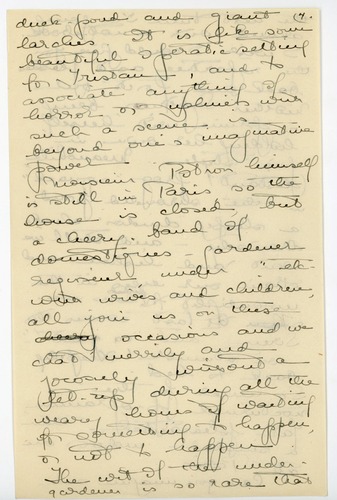 duck-pond and giant (4.
larches. It is like some
beautiful operatic setting
for Tristan, and to
associate anything of
horror or ugliness with
such a scene is
beyond one's imaginative
power.
Monsieur Potron himself
is still in Paris so the
house is closed, but
a cheery band of
domestiques, gardener
under etc
with wives and children,
all join us on these
cheery occasions and we
chat merrily and
jocosely without a
let-up during all the
weary hours of waiting
for something to happen,
or not to happen.
The wit of the under-
gardener is so rare that